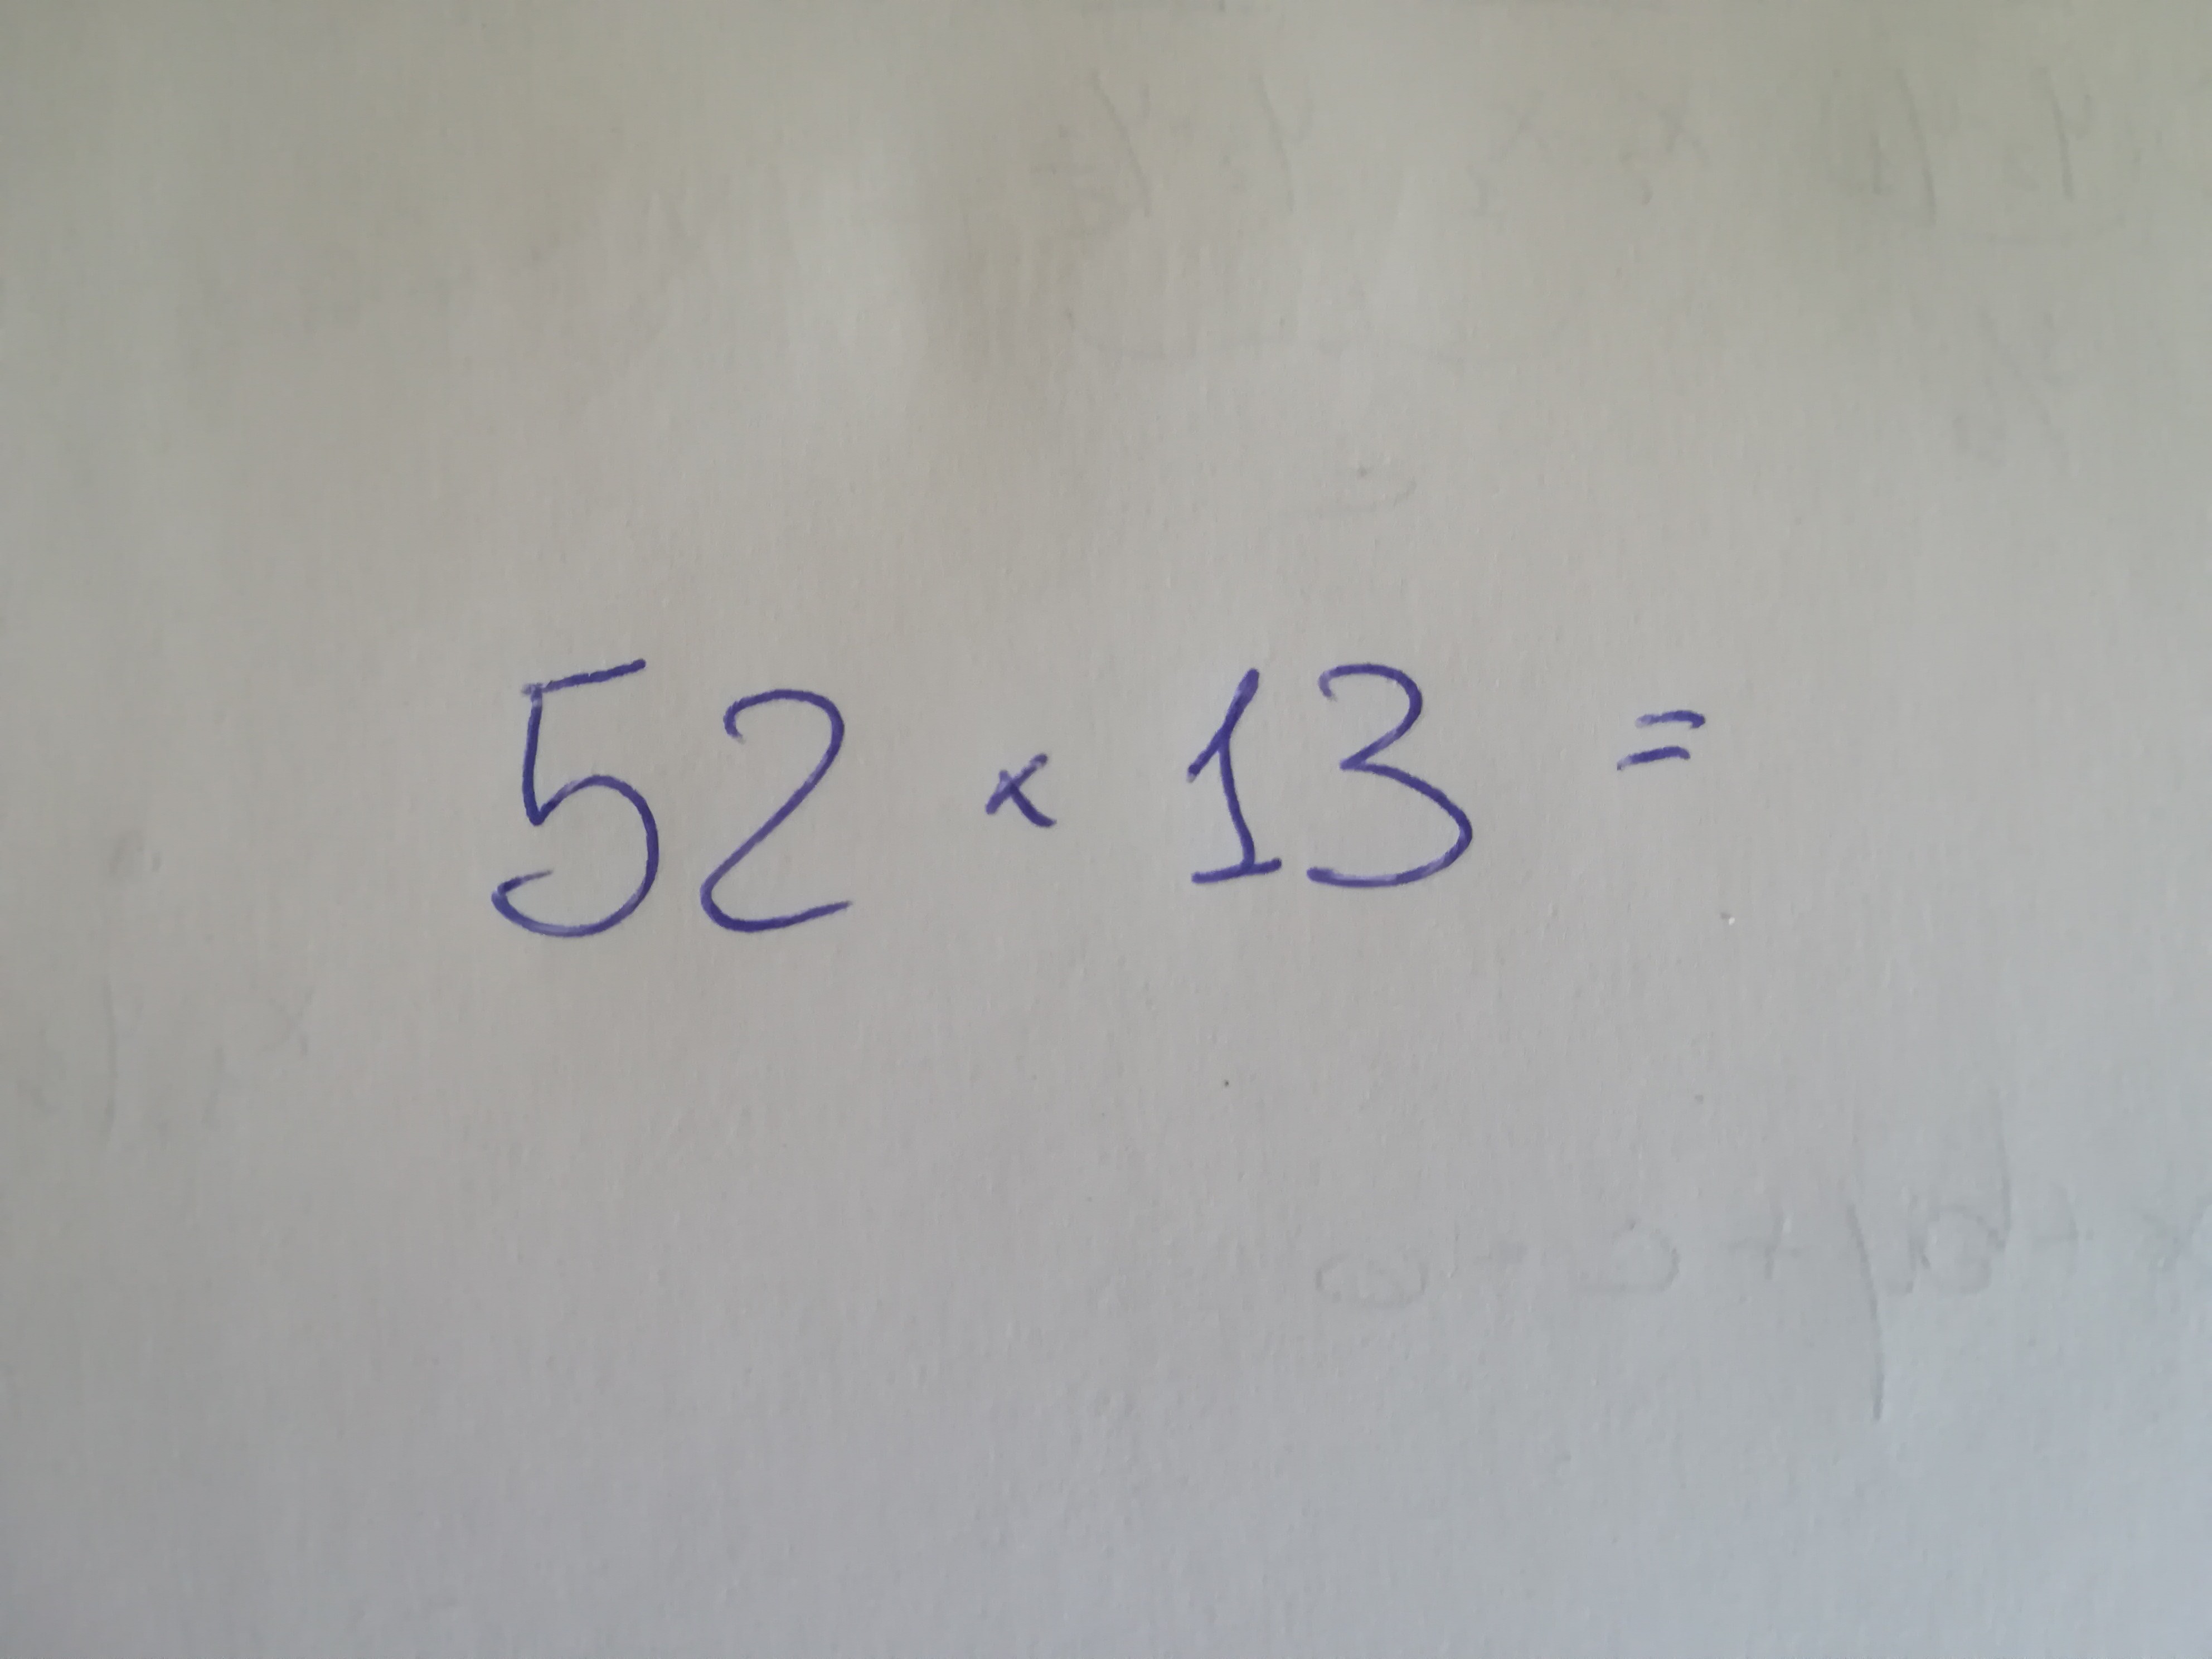 52 × 13 =